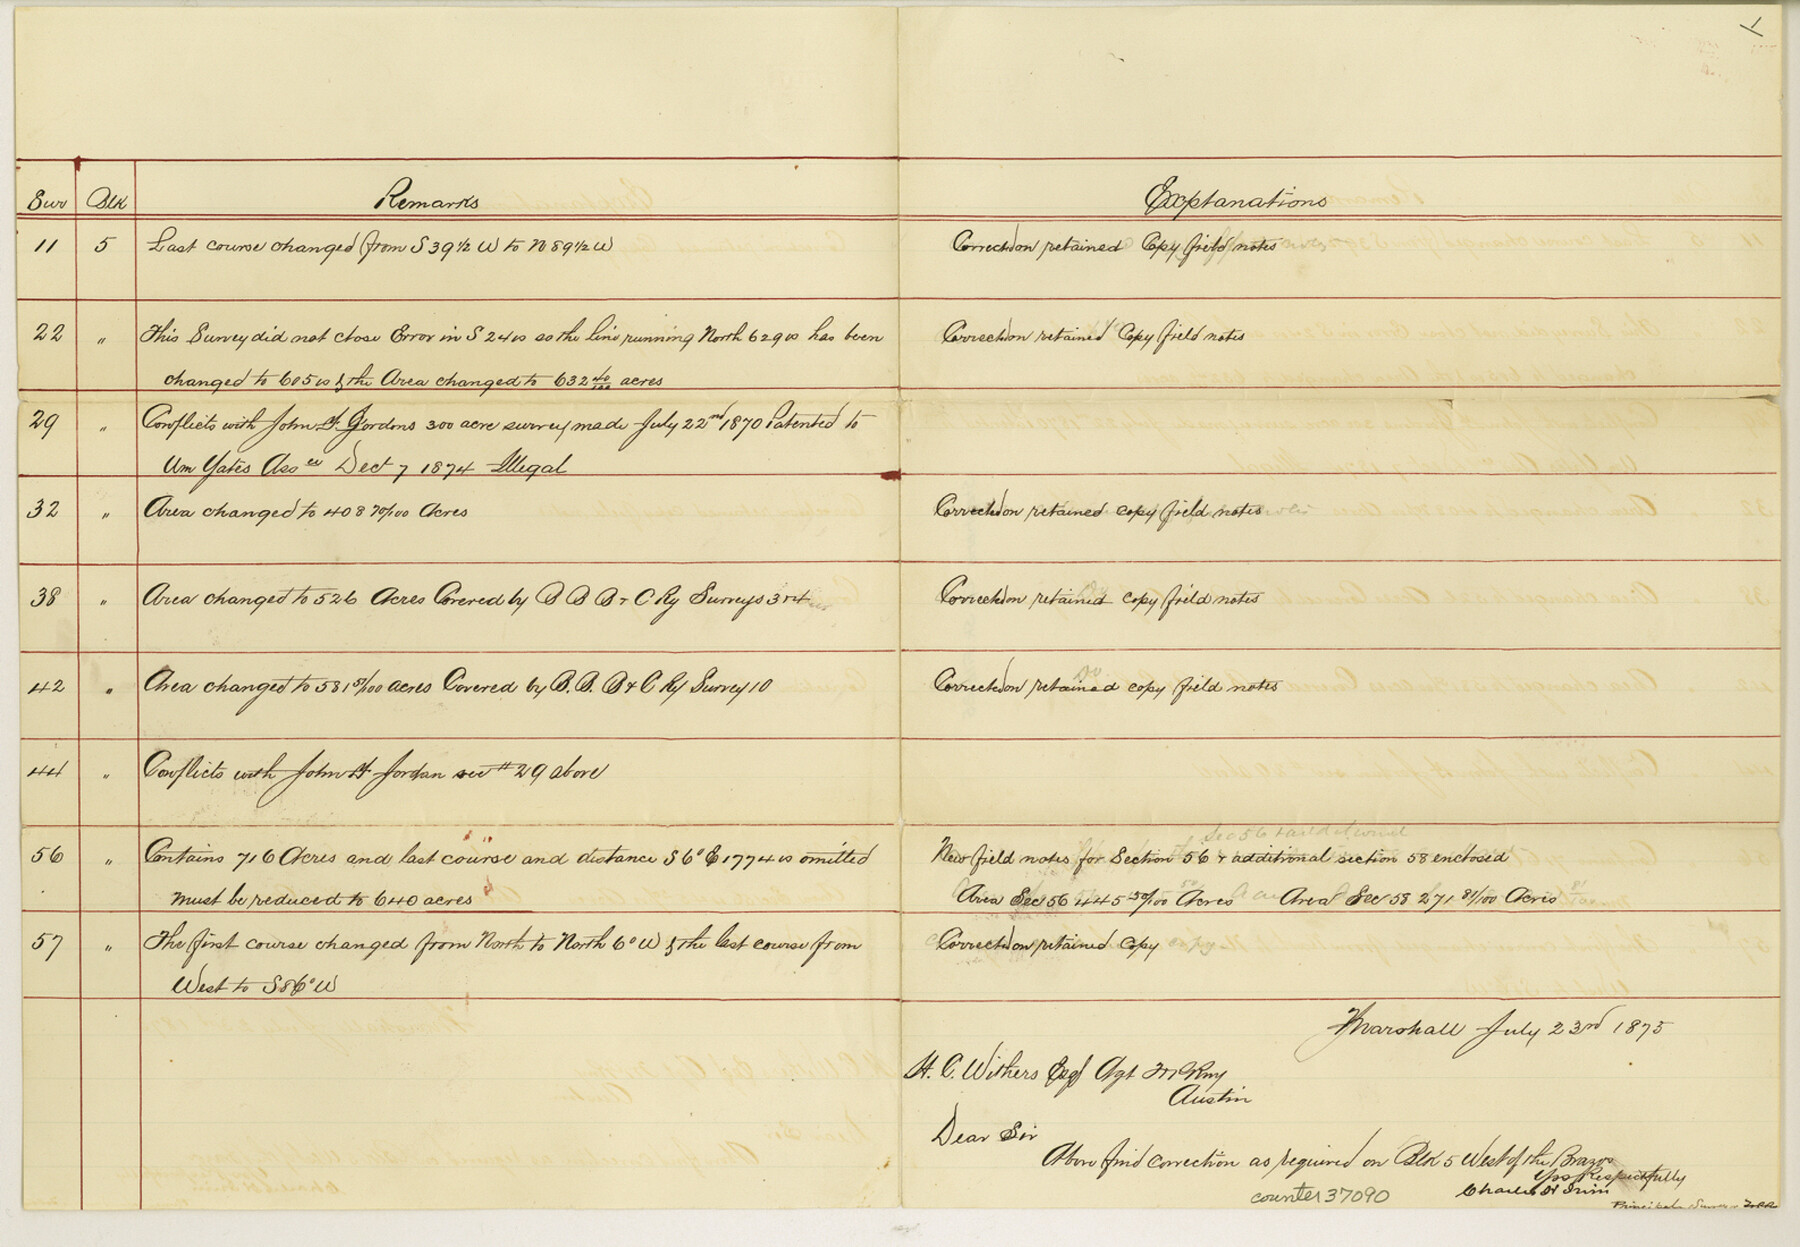 Sur Blk Remarks Explanations
11 5 Last course changed from S 39 1/2 W to N 89 1/2 W Correction retained Copy field notes
22 " This Survey did not close Error in S 24 vs so the line running North 629 vs has been Correction retained Copy field notes
changed to 605 vs & the Area changed to 632 40/100 acres
29 " Conflicts with John H. Jordons 300 acre survey made July 22nd 1870 Patented to
Wm Yates Assee Dect 7 1874 Illegal
32 " Area changed to 408 70/100 Acres Correction retained copy field notes
38 " Area changed to 526 Acres Covered by B B B & C Ry Surveys 3 Correction retained copy field notes
42 " Area changed to 581 51/100 acres Covered by B. B. B & C Ry Survey 10 Correction retained copy field notes
44 " Conflicts with John H Jordan see # 29 above
Sec 56
56 " Contains 716 Acres and last course and distance S 6° E 1774 vs omitted New field notes for Section 56 & additional section 58 enclosed
must be reduced to 640 acres Area Sec 56 445 50/100 Acres Area Sec 58 271 81/100 Acres
57 " The first course changed from North to North 6° W & the last course from Correction retained copy
West to S 86° W
Marshall July 23rd 1875
H. C. Withers Esq Agt
Austin
Dear Sir
Above find correction as required on Blk 5 West of the Brazos
Yrs Respectfully
Charles H
counter 37090